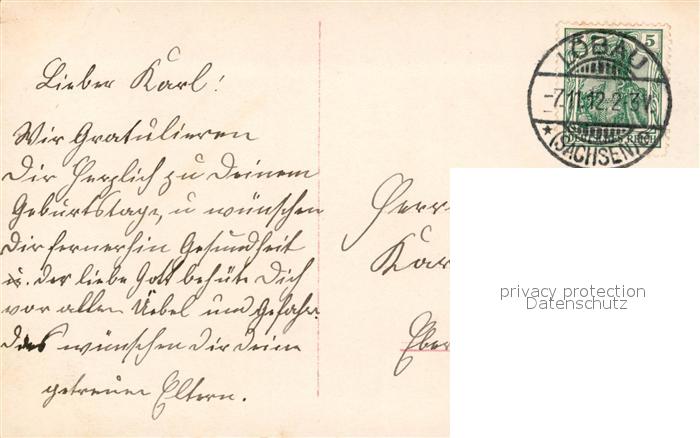 Lieber Karl!
Wir Gratulieren
Dir Herzlich zu Deinem
Geburtstage, u wünschen
Dir fernerhin Gesundheit
u. der liebe Gott behüte Dich
vor allen Uebel und Gefahr.
das wünschen Dir Deine
getreuen Eltern.
5
LÖBAU
-7.11.12.2-3N.
* (SACHSEN)
DEUTSCHES REICH
Herr
Kar
Eber
privacy protection
Datenschutz